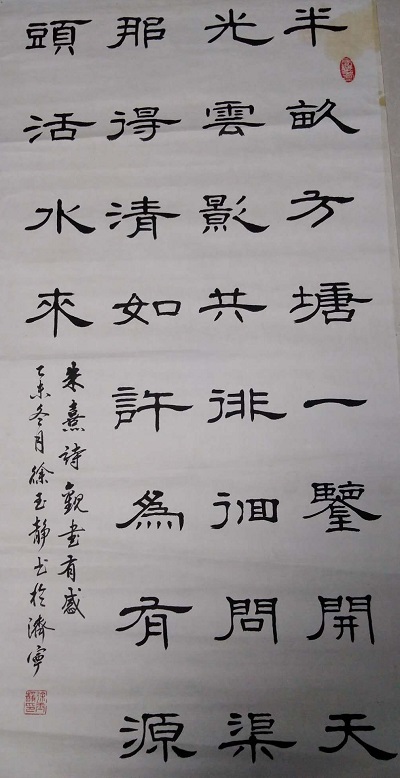 半畝方塘一鑒開天
光雲影共徘徊問渠
那得清如許為有源
頭活水來
朱熹詩觀書有感
乙未冬月徐玉靜書於濟寧